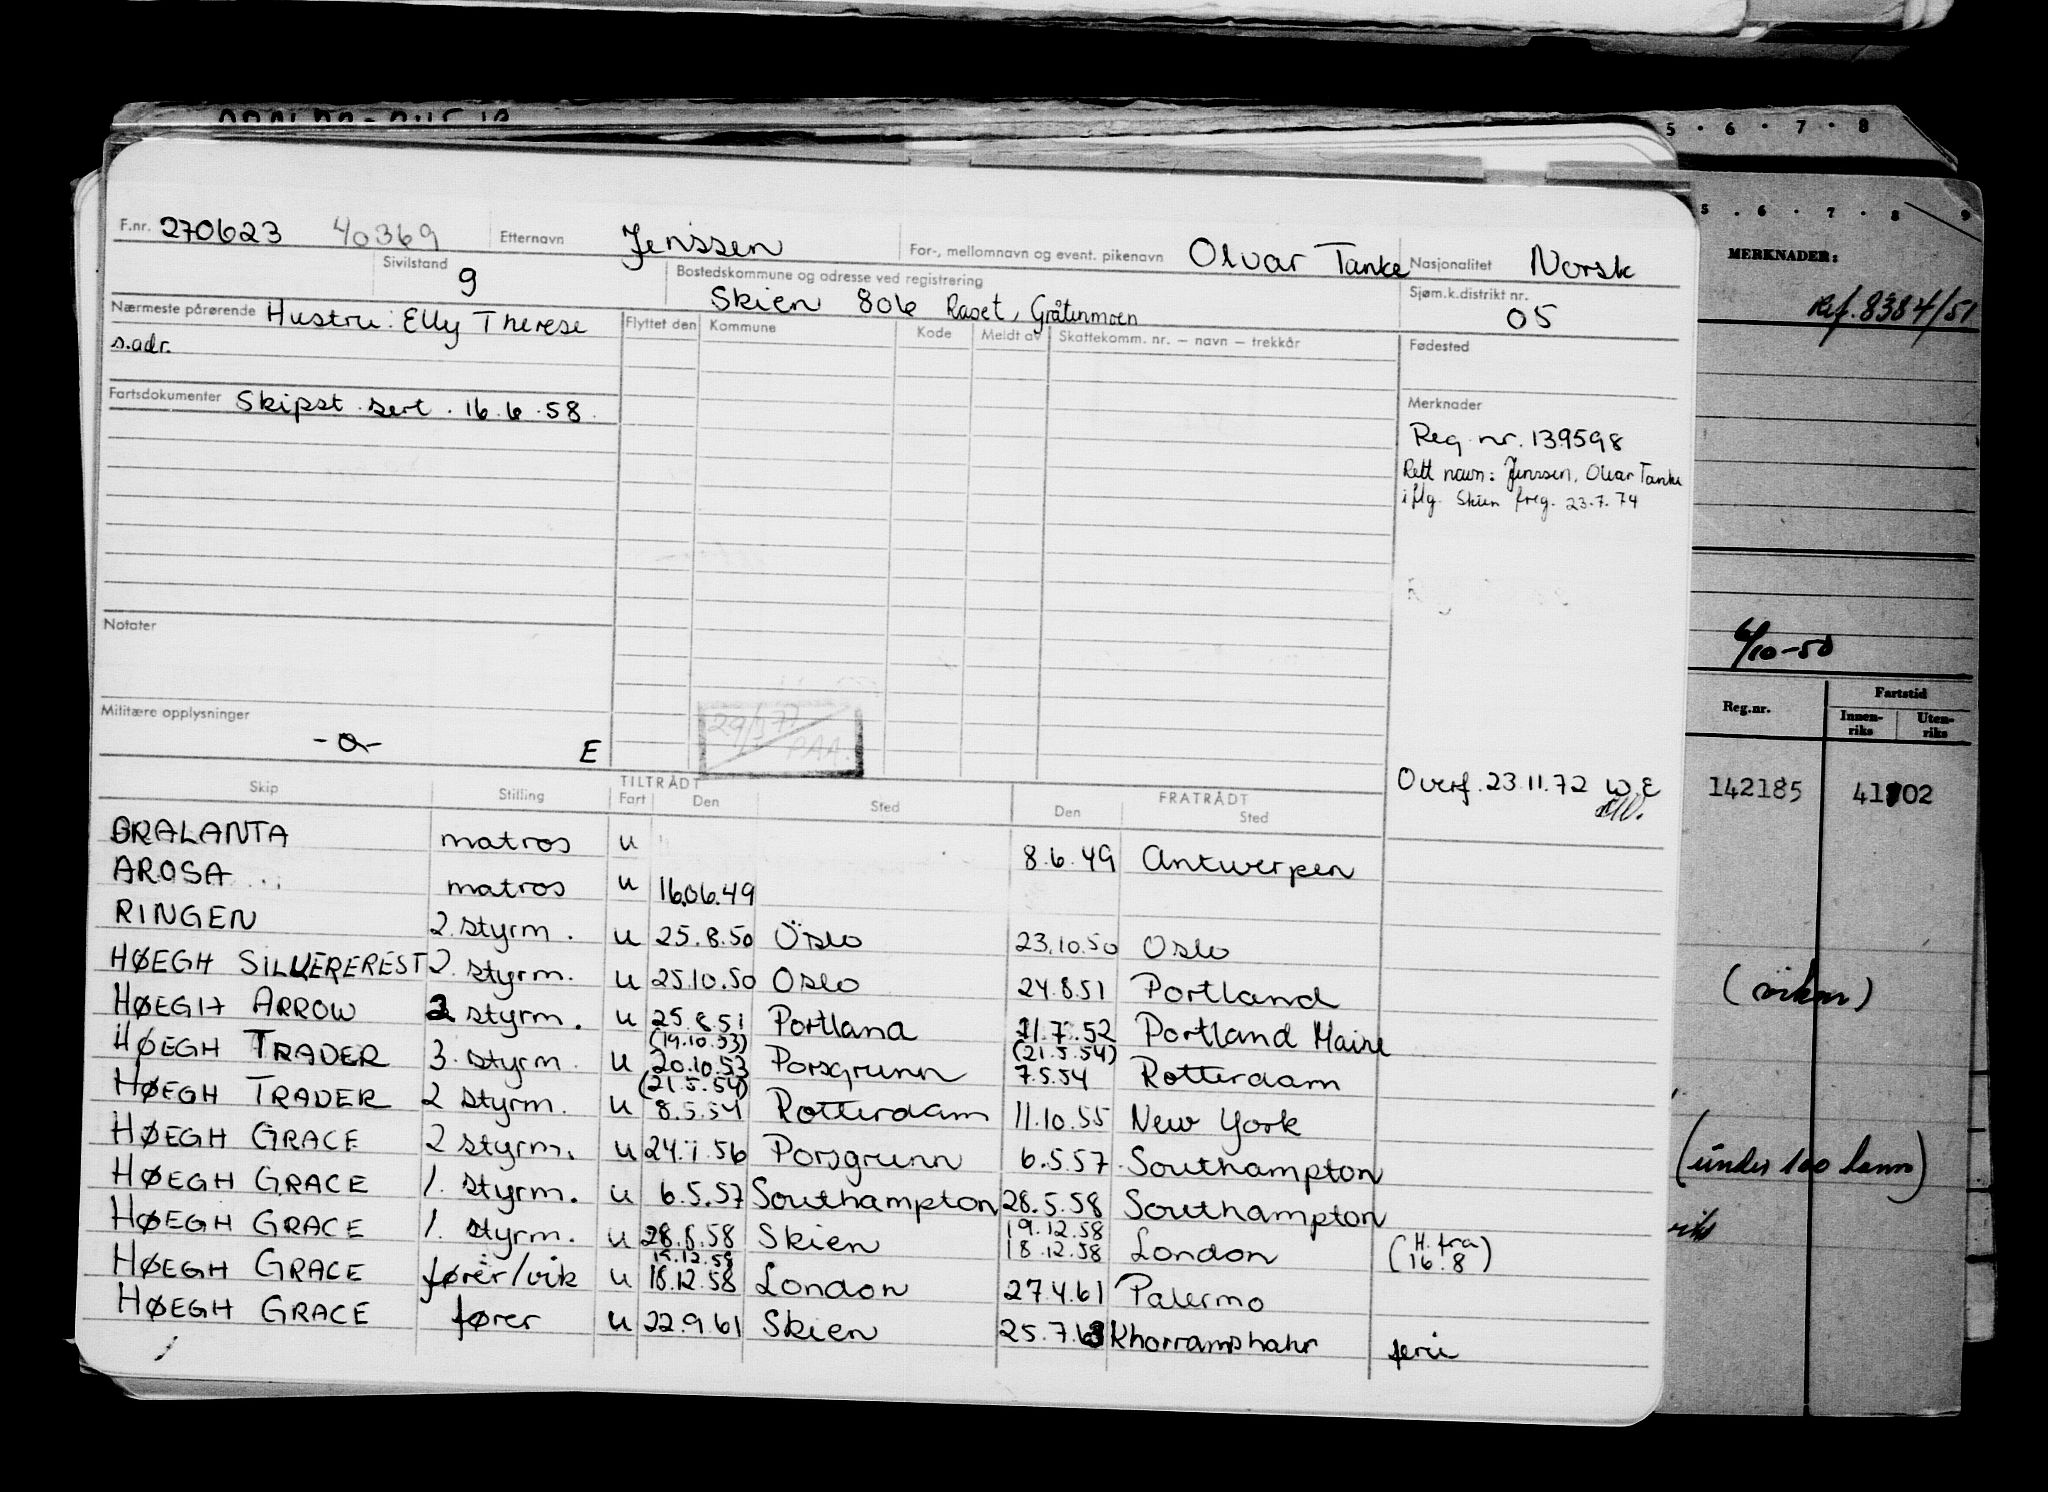 F.nr. 270623 40369 Etternavn Jenssen For-, mellomnavn og event. pikenavn Olvar Tanke Nasjonalitet Norsk
Sivilstand 9 Bostedskommune og adresse ved registrering Skien 806 Raset, Gråtenmoen Sjøm.k.distrikt nr. 05
Nærmeste pårørende Hustru: Elly Therese
s.adr.
Flyttet den Kommune Kode Meldt av Skattekomm. nr. — navn — trekkår Fødested
Fartsdokumenter Skipst. sert. 16.6.58.
Merknader
Reg. nr. 139598
Rett navn: Jenssen, Olvar Tanke
iflg. Skien freg. 23.7.74
Notater
Militære opplysninger
-o- E
29/3 77
PAA.
Overf. 23.11.72 W.E
Skip Stilling TILTRÅDT Fart Den Sted FRATRÅDT Den Sted
BRALANTA matros u 8.6.49 Antwerpen
AROSA matros u 16.06.49
RINGEN 2. styrm. u 25.8.50 Oslo 23.10.50 Oslo
HØEGH SILVERCREST 2. styrm. u 25.10.50 Oslo 24.8.51 Portland
HØEGH ARROW 2 styrm. u 25.8.51 Portland 21.7.52 Portland Maine
(19.10.53) (21.5.54)
HØEGH TRADER 3. styrm. u 20.10.53 Porsgrunn 7.5.54 Rotterdam
(21.5.54)
HØEGH TRADER 2 styrm. u 8.5.54 Rotterdam 11.10.55 New York
HØEGH GRACE 2 styrm. u 24.1.56 Porsgrunn 6.5.57 Southampton
HØEGH GRACE 1. styrm. u 6.5.57 Southampton 28.5.58 Southampton
19.12.58
HØEGH GRACE 1. styrm. u 28.8.58 Skien 18.12.58 London (H. fra 16.8)
19.12.58
HØEGH GRACE fører/vik u 18.12.58 London 27.4.61 Palermo
HØEGH GRACE fører u 22.9.61 Skien 25.7.63 Khorramshahr ferie
5 · 6 · 7 · 8
5 · 6 · 7 · 8 9
MERKNADER:
Ref. 8384/51
6/10-50
Reg.nr. Fartstid
Innen-riks Uten-riks
142185 41102
(under 100